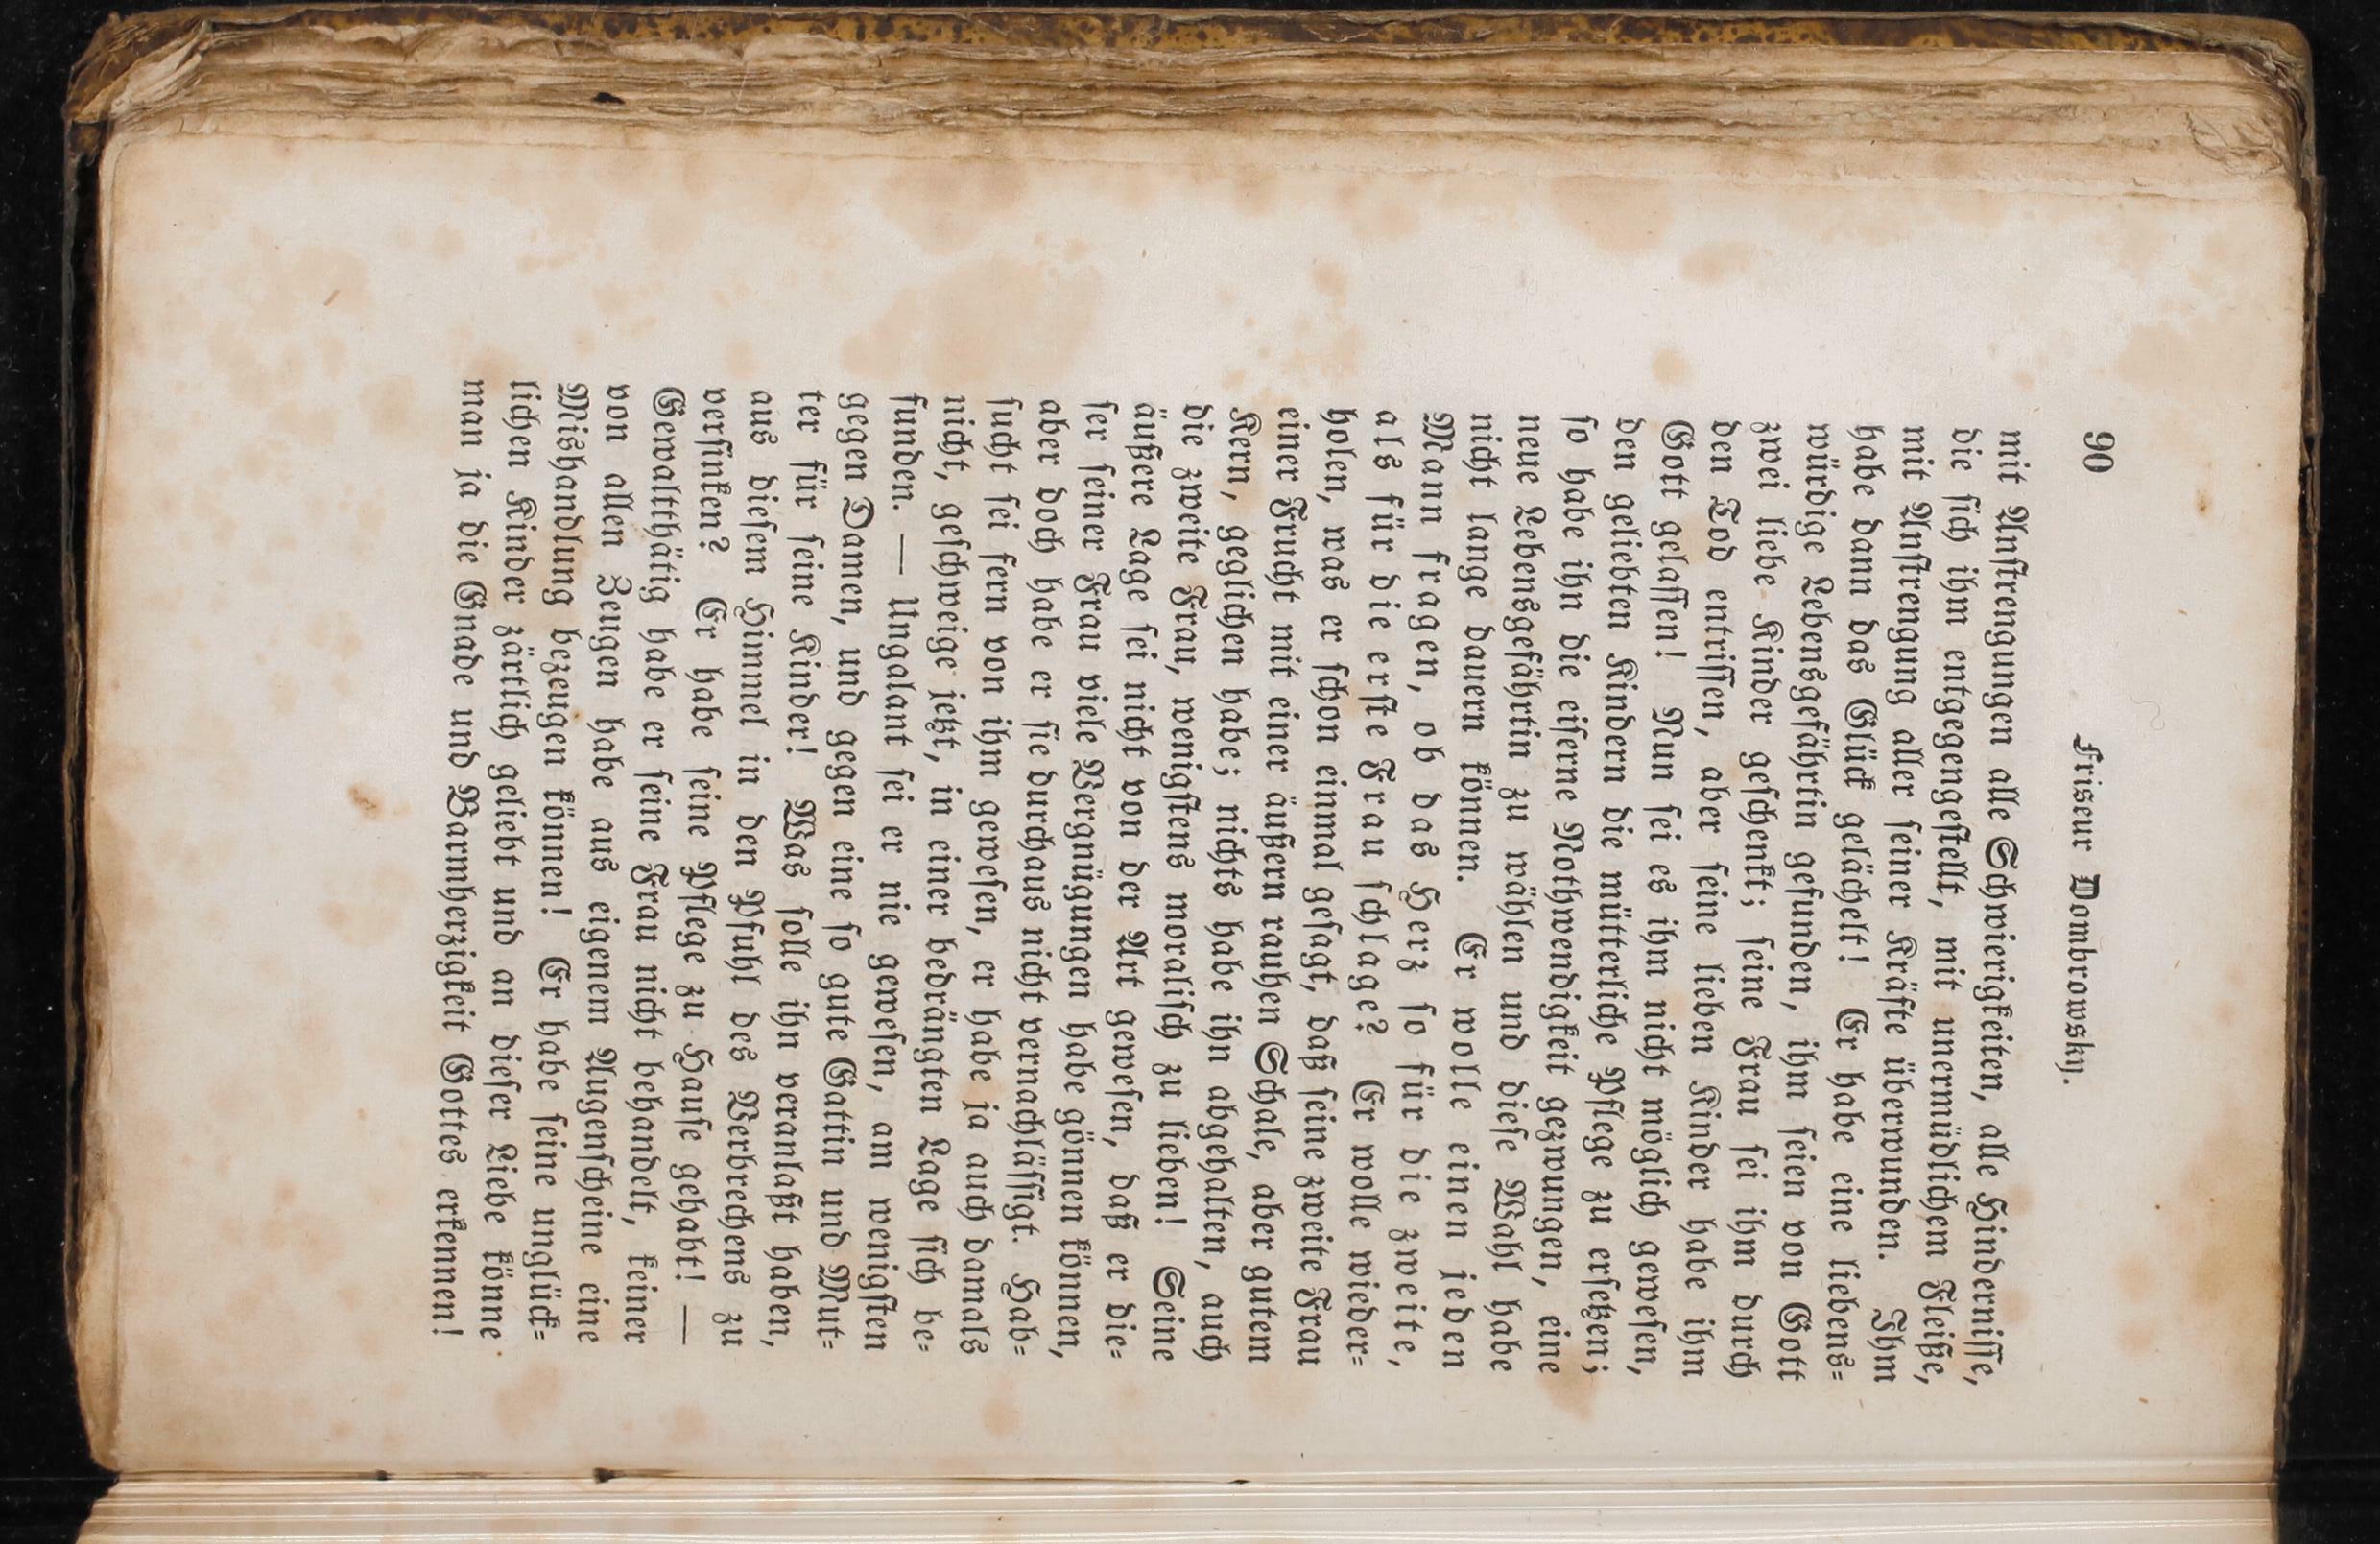 90
Friseur Dombrowsky.
mit Anstrengungen alle Schwierigkeiten, alle Hindernisse,
die sich ihm entgegengestellt, mit unermüdlichem Fleiße,
mit Anstrengung aller seiner Kräfte überwunden. Ihm
habe dann das Glück gelächelt! Er habe eine liebens-
würdige Lebensgefährtin gefunden, ihm seien von Gott
zwei liebe Kinder geschenkt; seine Frau sei ihm durch
den Tod entrissen, aber seine lieben Kinder habe ihm
Gott gelassen! Nun sei es ihm nicht möglich gewesen,
den geliebten Kindern die mütterliche Pflege zu ersetzen;
so habe ihn die eiserne Nothwendigkeit gezwungen, eine
neue Lebensgefährtin zu wählen und diese Wahl habe
nicht lange dauern können. Er wolle einen jeden
Mann fragen, ob das Herz so für die zweite,
als für die erste Frau schlage? Er wolle wieder-
holen, was er schon einmal gesagt, daß seine zweite Frau
einer Frucht mit einer äußern rauhen Schale, aber gutem
Kern, geglichen habe; nichts habe ihn abgehalten, auch
die zweite Frau, wenigstens moralisch zu lieben! Seine
äußere Lage sei nicht von der Art gewesen, daß er die-
ser seiner Frau viele Vergnügungen habe gönnen können,
aber doch habe er sie durchaus nicht vernachlässigt. Hab-
sucht sei fern von ihm gewesen, er habe ja auch damals
nicht, geschweige jetzt, in einer bedrängten Lage sich be-
funden. — Ungalant sei er nie gewesen, am wenigsten
gegen Damen, und gegen eine so gute Gattin und Mut-
ter für seine Kinder! Was solle ihn veranlaßt haben,
aus diesem Himmel in den Pfuhl des Verbrechens zu
versinken? Er habe seine Pflege zu Hause gehabt! —
Gewaltthätig habe er seine Frau nicht behandelt, keiner
von allen Zeugen habe aus eigenem Augenscheine eine
Mishandlung bezeugen können! Er habe seine unglück-
lichen Kinder zärtlich geliebt und an dieser Liebe könne
man ja die Gnade und Barmherzigkeit Gottes erkennen!